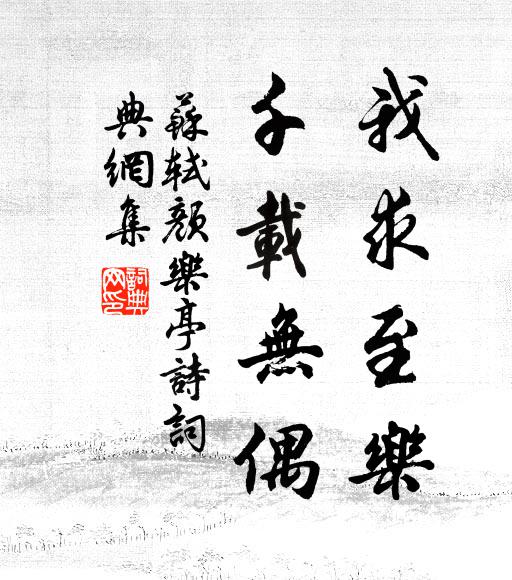 我求至樂
千載無偶
蘇軾顏樂亭詩詞
典網集
詞典
网印